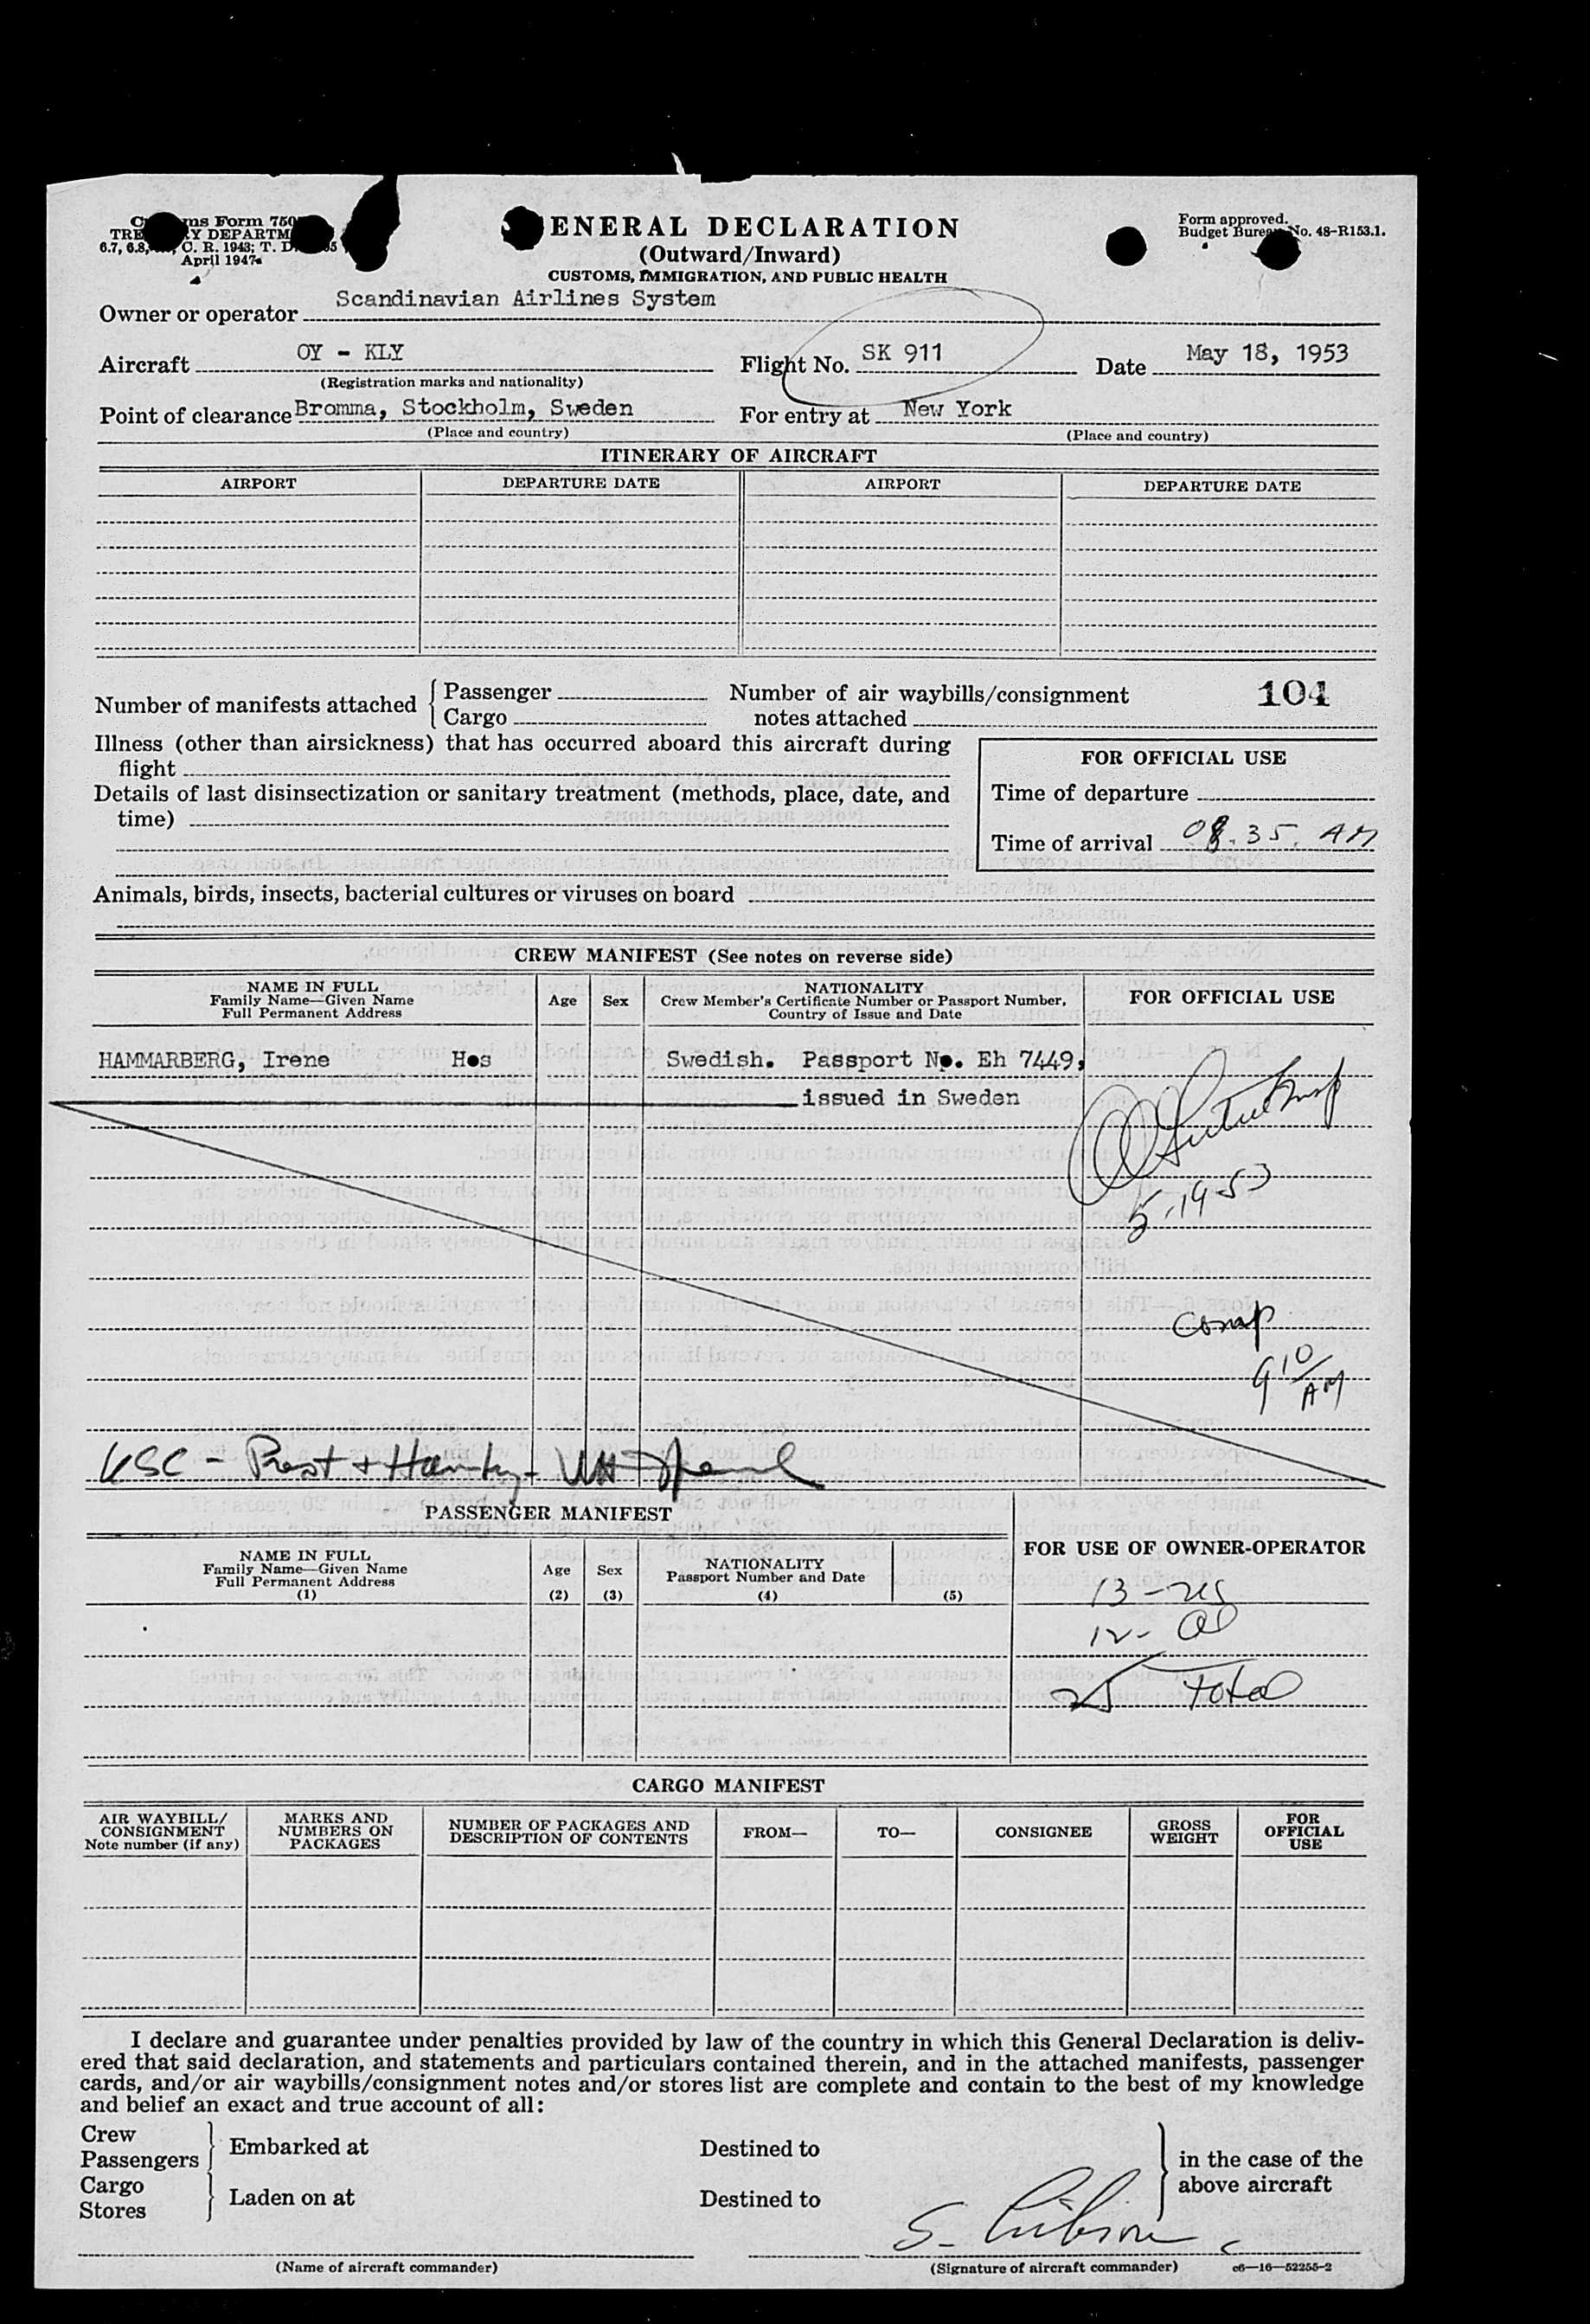 ms Form 750
TRE Y DEPARTM
6.7, 6.8, C. R. 1943; T. D. 5
April 1947
ENERAL DECLARATION
(Outward/Inward)
CUSTOMS, IMMIGRATION, AND PUBLIC HEALTH
Form approved.
Budget Bureau No. 48-R153.1.
Owner or operator Scandinavian Airlines System
Aircraft OY - KLY Flight No. SK 911 Date May 18, 1953
(Registration marks and nationality)
Point of clearance Bromma, Stockholm, Sweden For entry at New York
(Place and country) (Place and country)
ITINERARY OF AIRCRAFT
AIRPORT DEPARTURE DATE AIRPORT DEPARTURE DATE
Number of manifests attached { Passenger
Cargo
Number of air waybills/consignment
notes attached
104
Illness (other than airsickness) that has occurred aboard this aircraft during
flight
Details of last disinsectization or sanitary treatment (methods, place, date, and
time)
FOR OFFICIAL USE
Time of departure
Time of arrival 08.35. AM
Animals, birds, insects, bacterial cultures or viruses on board
CREW MANIFEST (See notes on reverse side)
NAME IN FULL
Family Name—Given Name
Full Permanent Address
Age Sex
NATIONALITY
Crew Member's Certificate Number or Passport Number,
Country of Issue and Date
FOR OFFICIAL USE
HAMMARBERG, Irene Hos Swedish. Passport No. Eh 7449,
issued in Sweden
5-19-53
Comp
9 10/AM
USC -
PASSENGER MANIFEST
NAME IN FULL
Family Name—Given Name
Full Permanent Address
(1)
Age
(2)
Sex
(3)
NATIONALITY
Passport Number and Date
(4) (5)
FOR USE OF OWNER-OPERATOR
13 - us
12 - al
25 Total
CARGO MANIFEST
AIR WAYBILL/
CONSIGNMENT
Note number (if any)
MARKS AND
NUMBERS ON
PACKAGES
NUMBER OF PACKAGES AND
DESCRIPTION OF CONTENTS
FROM— TO— CONSIGNEE
GROSS
WEIGHT
FOR
OFFICIAL
USE
I declare and guarantee under penalties provided by law of the country in which this General Declaration is deliv-
ered that said declaration, and statements and particulars contained therein, and in the attached manifests, passenger
cards, and/or air waybills/consignment notes and/or stores list are complete and contain to the best of my knowledge
and belief an exact and true account of all:
Crew
Passengers } Embarked at Destined to
Cargo
Stores } Laden on at Destined to
} in the case of the
above aircraft
S.
(Name of aircraft commander) (Signature of aircraft commander) c6—16—52255-2